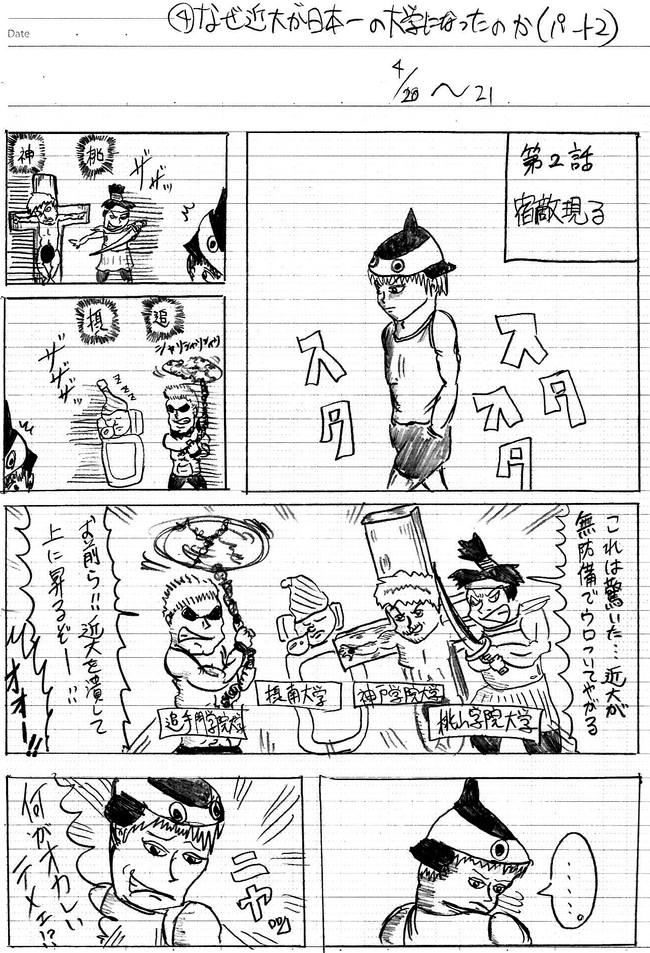 ④なぜ近大が日本一の大学になったのか(パート2)
Date
4/20〜21
第2話
宿敵現る
スタ
スタ
スタ
桃
神
ザザッ
追
摂
シャリシャリシャリ
ザザザッ
zzzz
これは驚いた…近大が
無防備でウロついてやがる
桃山学院大学
神戸学院大学
摂南大学
追手門学院大学
お前ら!!近大を潰して
上に昇るぞー!!
オオー!!
……。
ニヤッ
何がオカしい
テメェ!?